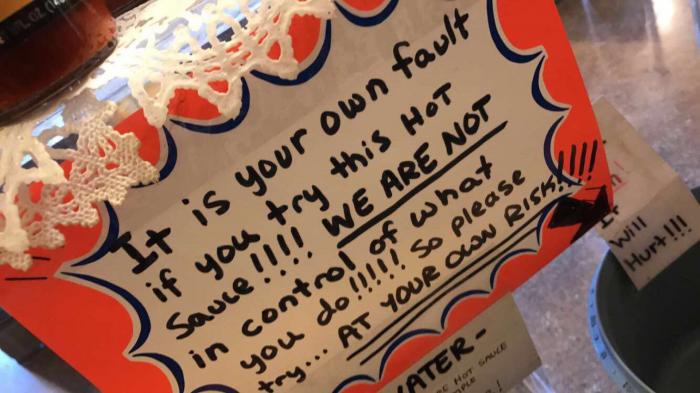 It is your own fault
if you try this HOT
Sauce!!!! WE ARE NOT
in control of what
you do!!!!! So please
try... AT YOUR OWN RISK!!!!!
It
Will
Hurt!!!
WATER-
HOT SAUCE